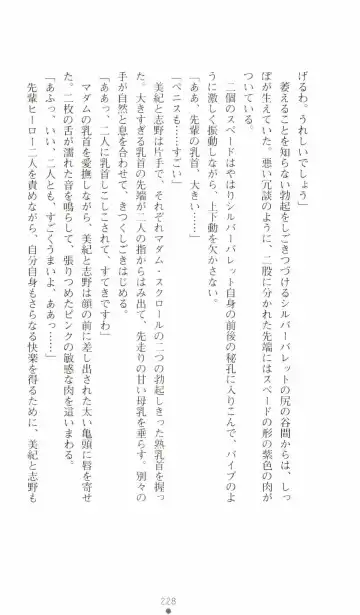 げるわ。うれしいでしょう」
萎えることを知らない勃起をしごきつづけるシルバーバレットの尻の谷間からは、しっ
ぽが生えていた。悪い冗談のように、二股に分かれた先端にはスペードの形の紫色の肉が
ついている。
二個のスペードはやはりシルバーバレット自身の前後の秘孔に入りこんで、バイブのよ
うに激しく振動しながら、上下動を欠かさない。
「ああ、先輩の乳首、大きい……」
「ペニスも……すごい」
美紀と志野は片手で、それぞれマダム・スクロールの二つの勃起しきった熟乳首を握っ
た。大きすぎる乳首の先端が二人の指からはみ出て、先走りの甘い母乳を垂らす。別々の
手が自然と息を合わせて、きつくしごきはじめる。
「ああっ、二人に乳首しこしこされて、すてきですわ」
マダムの乳首を愛撫しながら、美紀と志野は顔の前に差し出された太い亀頭に唇を寄せ
た。二枚の舌が濡れた音を鳴らして、張りつめたピンクの敏感な肉を這いまわる。
「あふっ、いい、二人とも、すごくうまいよ、ああっ……」
先輩ヒーロー二人を責めながら、自分自身もさらなる快楽を得るために、美紀と志野も
228